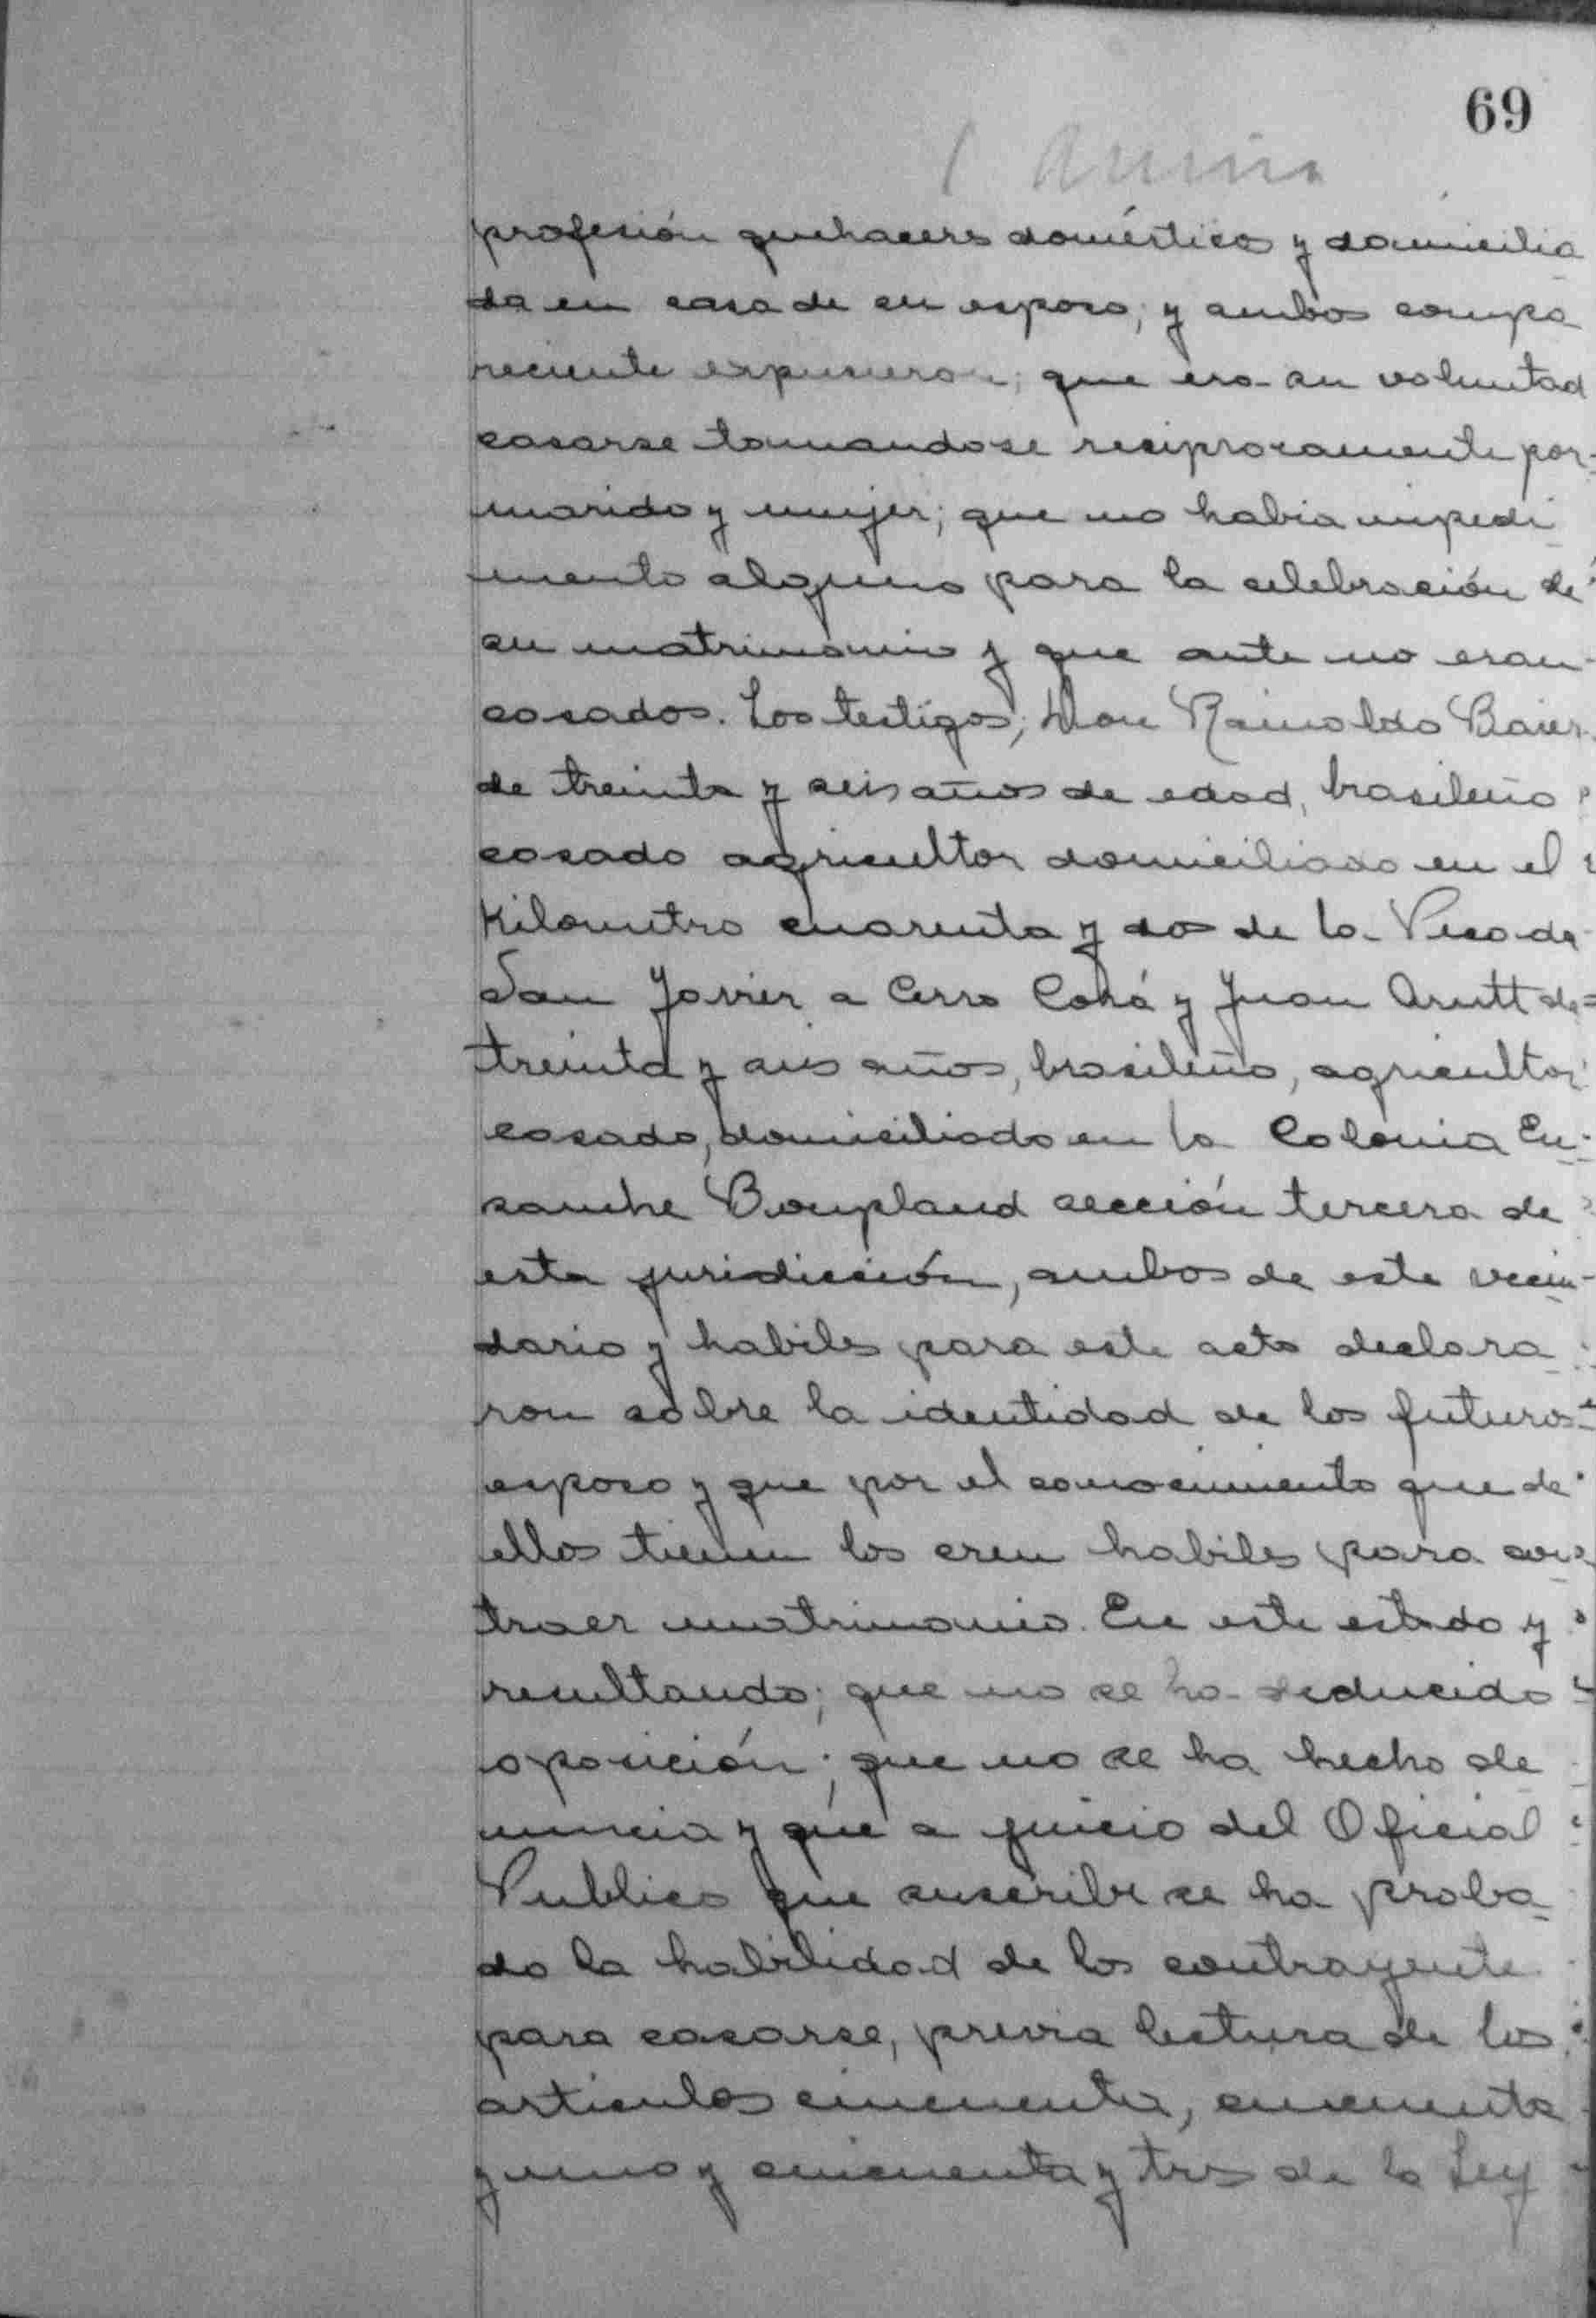 69
profesión quehacers doméstico y domicilia
da en casa de su esposo; y ambos compa
reciente expusieron; que era su voluntad
casarse tomandose resiprocamente por
marido y mujer; que no habia impedi
mento alguno para la celebración de
su matrimonio y que ante no eran
casados. Los testigos; Don Rainoldo Baier
de treinta y seis años de edad, brasileño
casado agricultor domiciliado en el
Kilometro cuarenta y dos de la Picada
San Javier a Cerro Corá y Juan Arutt de
treinta y seis años, brasileño, agricultor
casado, domiciliado en la Colonia En-
sanche Bonpland sección tercera de
esta jurisdicción, ambos de este vecin-
dario y habiles para este acto declara
ron sobre la identidad de los futuros
esposo y que por el conocimiento que de
ellos tienen los cren habiles para con
traer matrimonio. En este estado y
resultando; que no se ha deducido
oposición; que no se ha hecho de
nuncia y que a juicio del Oficial
Publico que suscribe se ha proba
do la habilidad de los contrayente
para casarse, previa lectura de los
articulos cincuenta, cincuenta
y uno y cincuenta y tres de la Ley